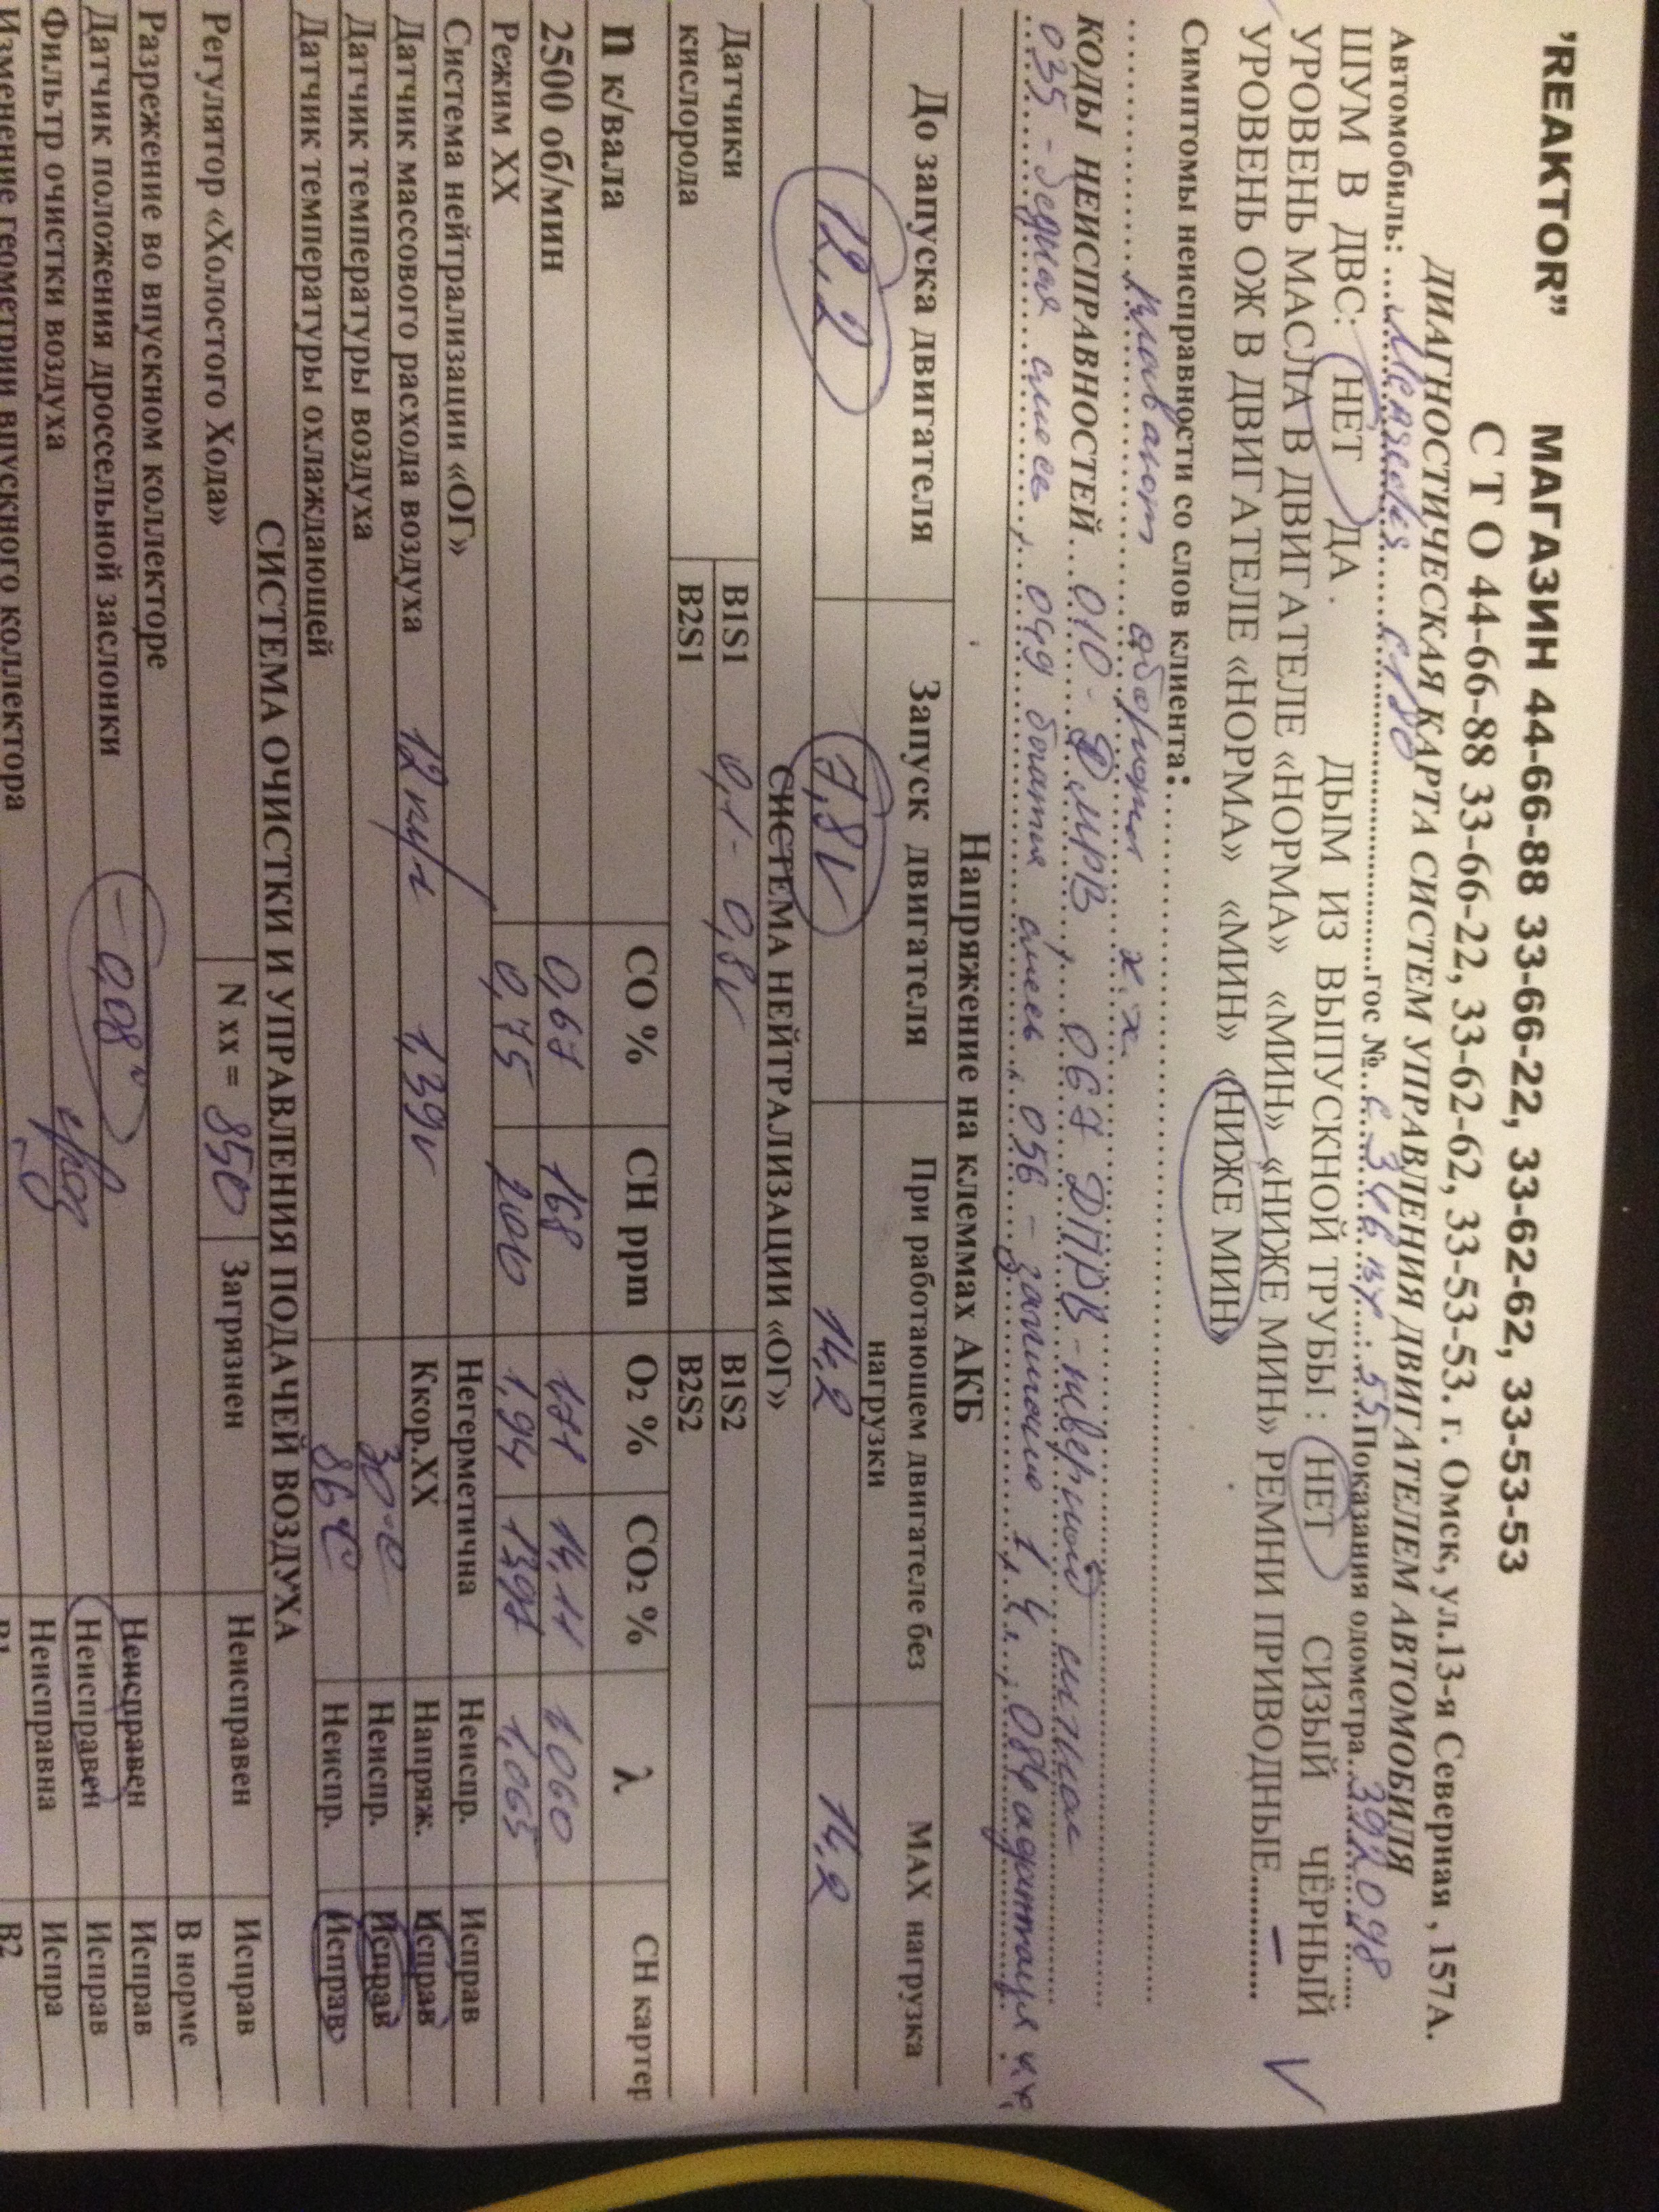 ’REAKTOR” МАГАЗИН 44-66-88 33-66-22, 33-62-62, 33-53-53
С Т О 44-66-88 33-66-22, 33-62-62, 33-53-53. г. Омск, ул.13-я Северная , 157А.
ДИАГНОСТИЧЕСКАЯ КАРТА СИСТЕМ УПРАВЛЕНИЯ ДВИГАТЕЛЕМ АВТОМОБИЛЯ
Автомобиль: Mercedes C180 гос № с 346 вт 55 Показания одометра 392098
ШУМ В ДВС: НЕТ ДА . ДЫМ ИЗ ВЫПУСКНОЙ ТРУБЫ : НЕТ СИЗЫЙ ЧЁРНЫЙ
УРОВЕНЬ МАСЛА В ДВИГАТЕЛЕ «НОРМА» «МИН» «НИЖЕ МИН» РЕМНИ ПРИВОДНЫЕ – V
УРОВЕНЬ ОЖ В ДВИГАТЕЛЕ «НОРМА» «МИН» «НИЖЕ МИН»
Симптомы неисправности со слов клиента:
плавают обороты х.х.
КОДЫ НЕИСПРАВНОСТЕЙ 010 - ДМРВ , 067 ДПРВ - неверный сигнал
035 - бедная смесь , 049 богатая смесь , 056 - зажигание 1 4 , 084 адаптация х.х.
Напряжение на клеммах АКБ
До запуска двигателя Запуск двигателя При работающем двигателе без нагрузки МАХ нагрузка
12,2 7,8V 14,2 14,2
СИСТЕМА НЕЙТРАЛИЗАЦИИ «ОГ»
Датчики кислорода B1S1 0,1 - 0,8v B1S2
B2S1 B2S2
n к/вала СО % СН ppm О₂ % СО₂ % λ СН картер
2500 об/мин 0,67 168 1,71 14,11 1,060
Режим ХХ 0,75 200 1,94 13,97 1,065
Система нейтрализации «ОГ» Негерметична Неиспр. Исправ
Датчик массового расхода воздуха 12 кг/ч 1,39v Ккор.ХХ Напряж. Исправ
Датчик температуры воздуха 30°C Неиспр. Исправ
Датчик температуры охлаждающей 86°C Неиспр. Исправ
СИСТЕМА ОЧИСТКИ И УПРАВЛЕНИЯ ПОДАЧЕЙ ВОЗДУХА
Регулятор «Холостого Хода» N хх = 850 Загрязнен Неисправен Исправ
В норме
Разрежение во впускном коллекторе Неисправен Исправ
Датчик положения дроссельной заслонки -0,08" Неисправен Исправ
Фильтр очистки воздуха Неисправна Испра
Изменение геометрии впускного коллектора B1 B2